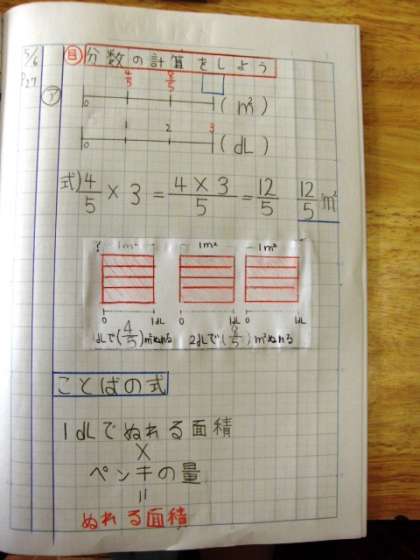 5/6
P27
目 分数の計算をしよう
ア
0 4/5 8/5 □ (m²)
0 1 2 3 (dL)
式) 4/5 × 3 = 4×3/5 = 12/5 12/5 m²
1m² 1m² 1m²
0 1dL 0 1dL 0 1dL
1dLで(4/5)m²ぬれる 2dLで(8/5)m²ぬれる
ことばの式
1dLでぬれる面積
×
ペンキの量
=
ぬれる面積